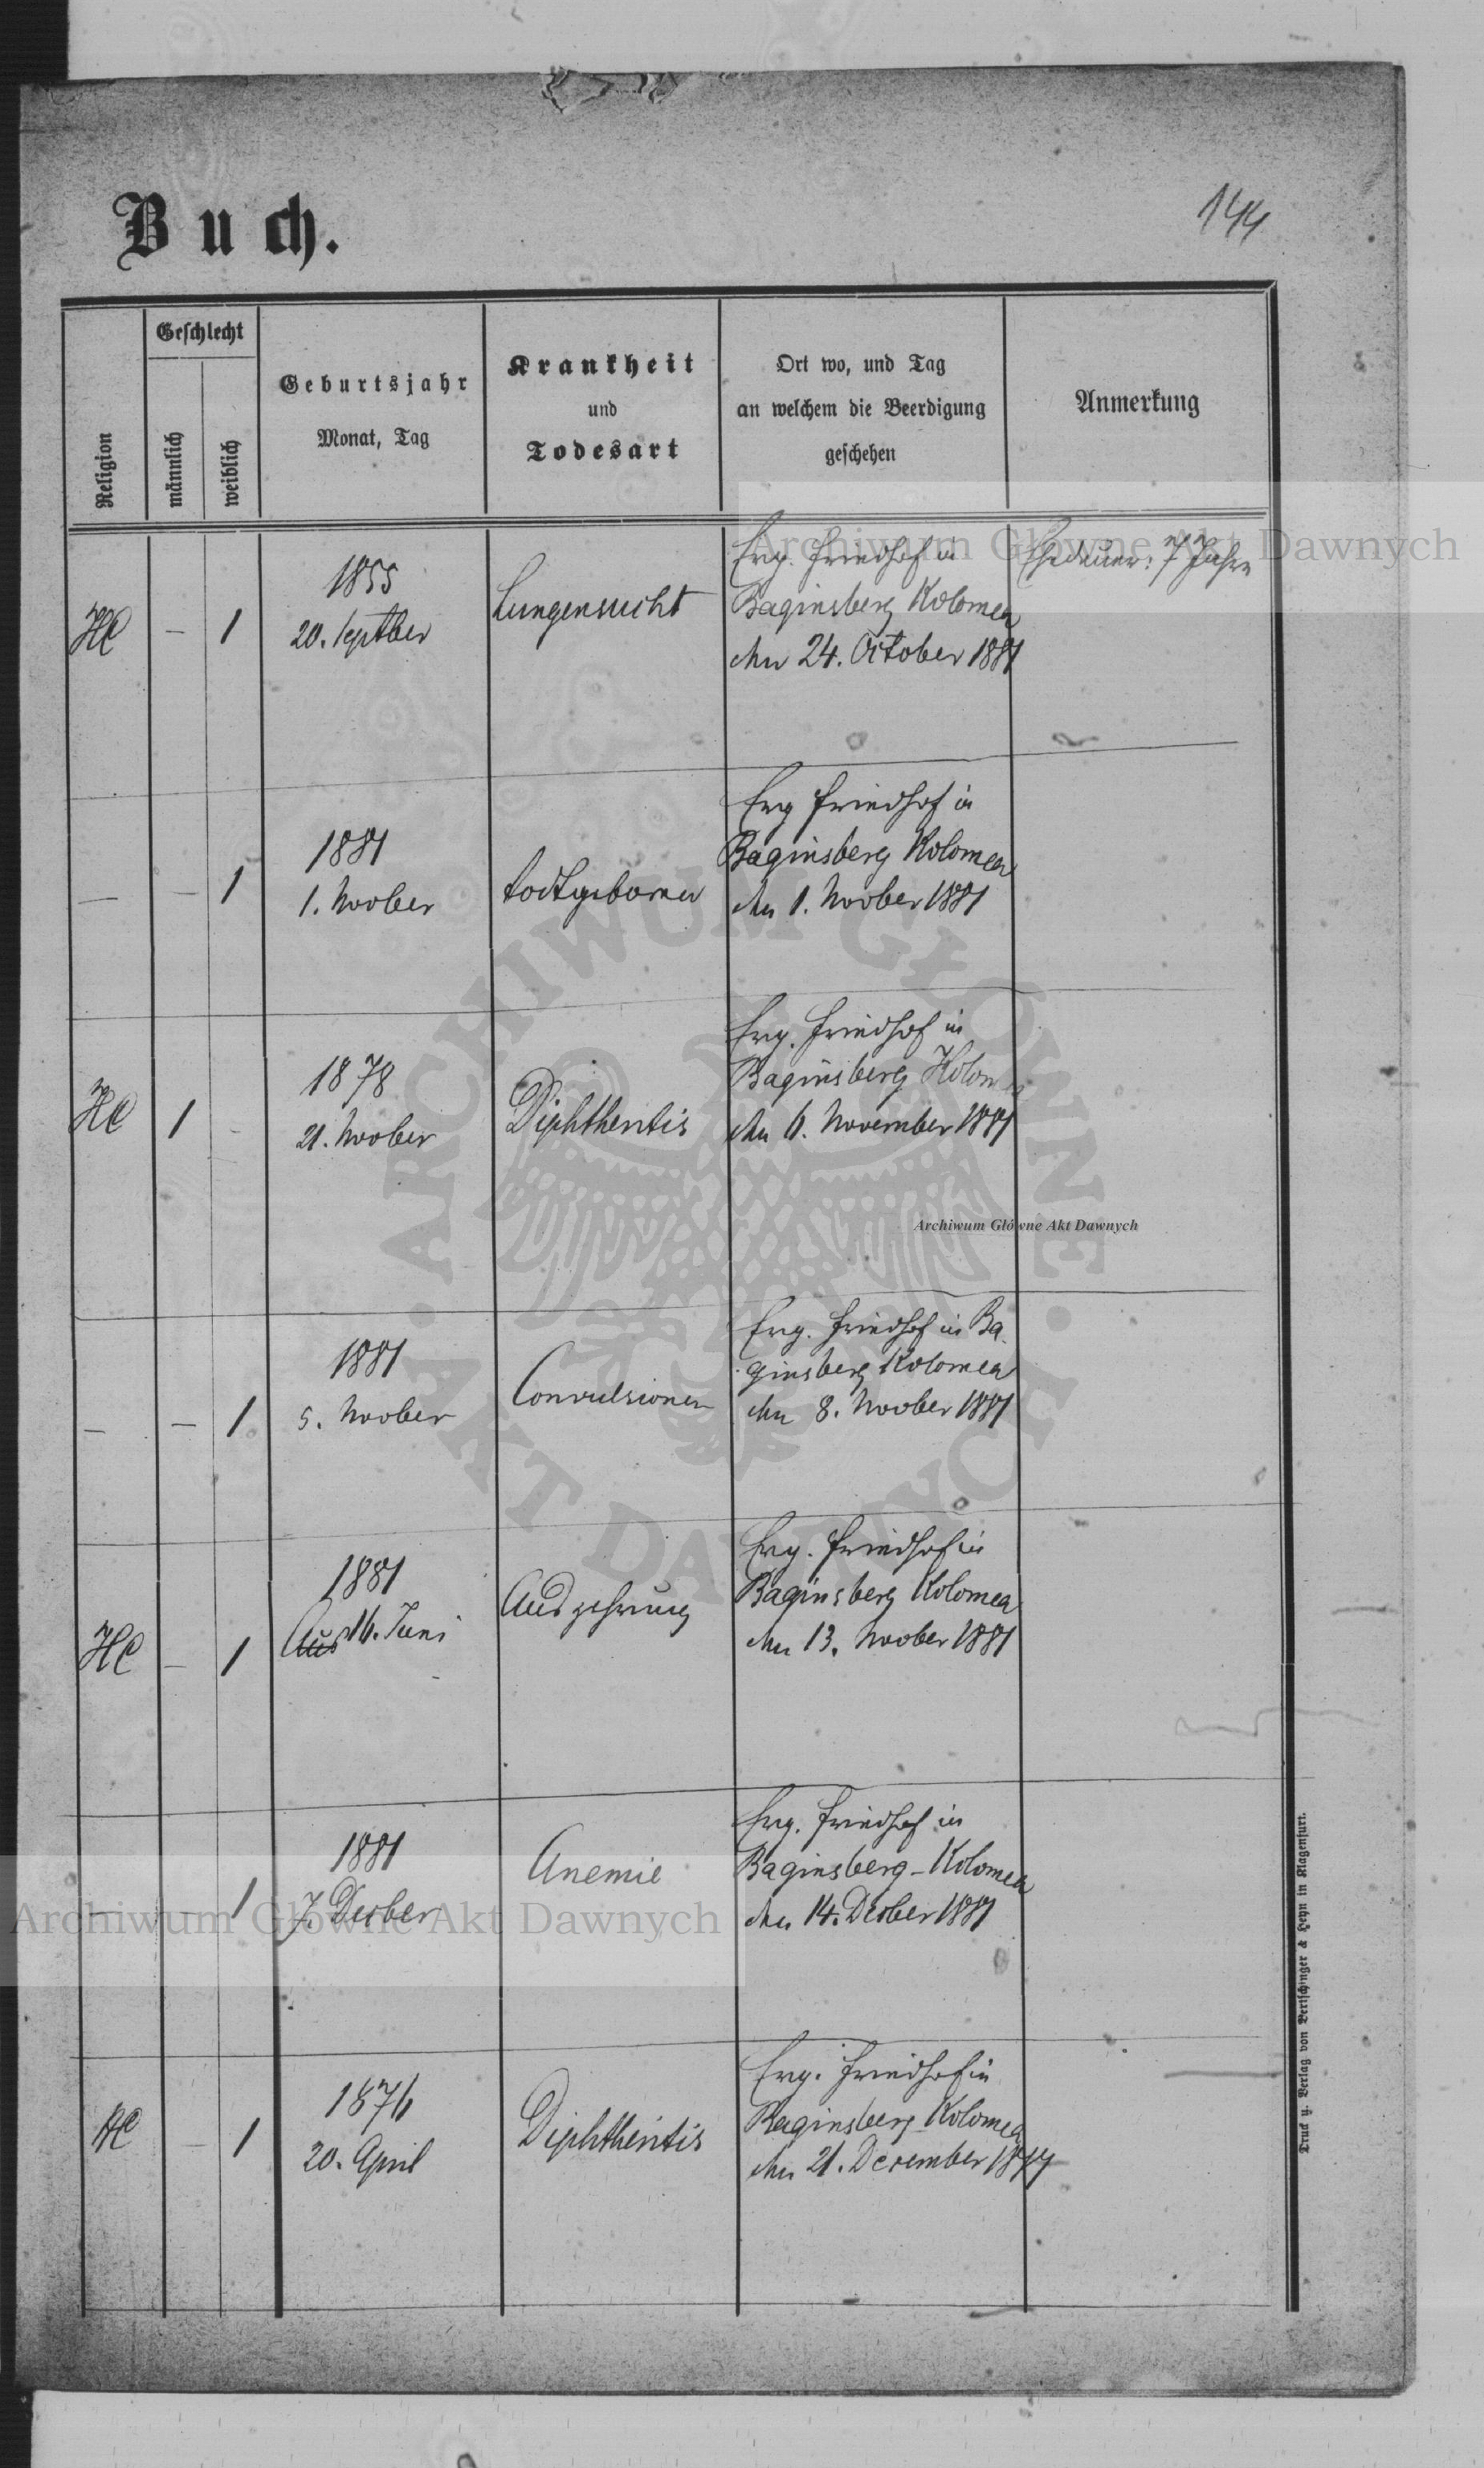 Buch.
144
Religion
Geschlecht
männlich
weiblich
Geburtsjahr
Monat, Tag
Krankheit
und
Todesart
Ort wo, und Tag
an welchem die Beerdigung
geschehen
Anmerkung
HC
—
1
1855
20. Septber
Lungensucht
Evg. Friedhof in
Baginsberg Kolomea
den 24. October 1881
Ehedauer: 7 Jahre
—
—
1
1881
1. Novber
todtgeboren
Evg Friedhof in
Baginsberg Kolomea
den 1. Novber 1881
HC
1
-
1878
21. Novber
Diphtheritis
Evg. Friedhof in
Baginsberg
den 6. November 1881
—
—
1
1881
5. Novber
Convulsionen
Evg. Friedhof in Ba
ginsberg Kolomea
den 8. Novber 1881
HC
—
1
1881
16. Juni
Auszehrung
Evg. Friedhof in
Baginsberg Kolomea
den 13. Novber 1881
—
-
1
1881
7. Decber
Anemie
Evg. Friedhof in
Baginsberg-Kolomea
den 14. Decber 1881
HC
—
1
1876
20. April
Diphtheritis
Evg. Friedhof in
Baginsberg Kolomea
den 21. December
Druck u. Verlag von Bertschinger & Heyn in Klagenfurt.
Archiwum Główne Akt Dawnych
Archiwum Główne Akt Dawnych
Archiwum Główne Akt Dawnych
ARCHIWUM GŁÓWNE · AKT DAWNYCH ·